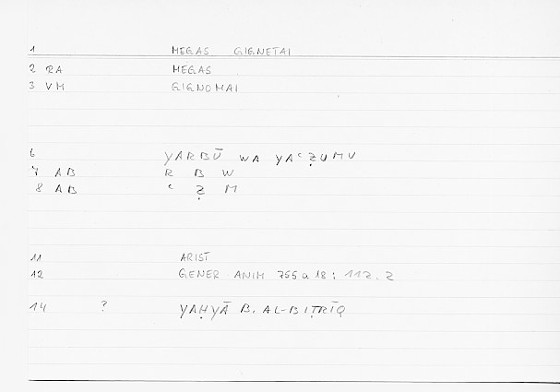 1 MEGAS GIGNETAI
2 RA MEGAS
3 VM GIGNOMAI
6 YARBŪ WA YAʿẒUMU
7 AB R B W
8 AB ʿ Ẓ M
11 ARIST
12 GENER ANIM 755 a 18 ; 117, 2
14 ? YAḤYĀ B. AL-BIṬRĪQ